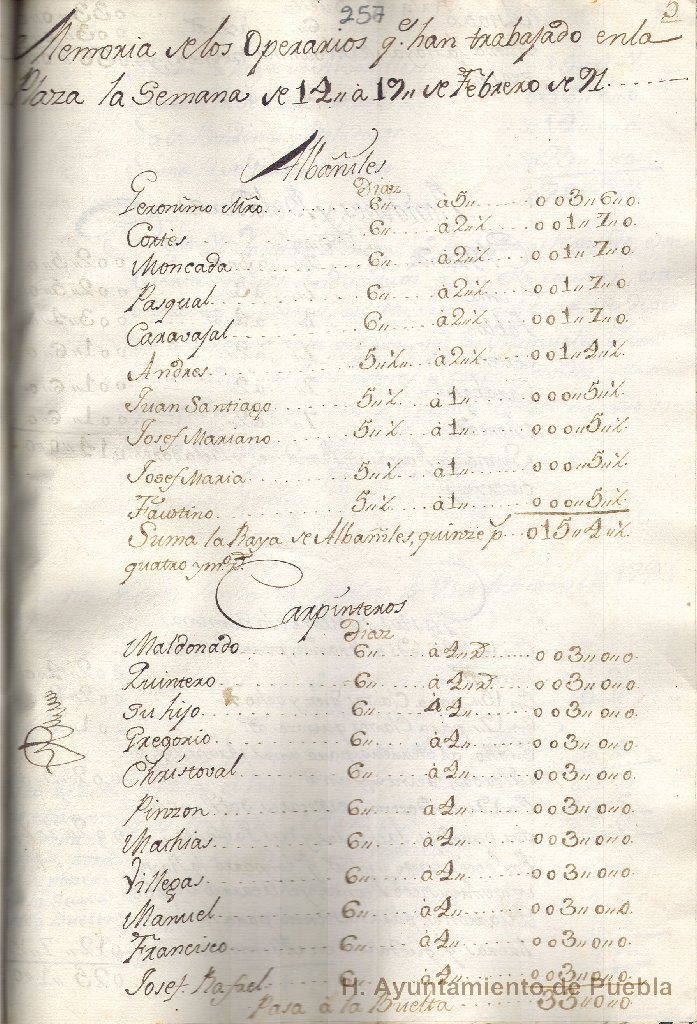 257
Memoria de los Operarios q.e han trabajado en la
Plaza la Semana de 14,, à 19,, de Febrero de 91
Albañiles
Diaz
Geronimo Mro. 6,, à 5,, 003,,6,,0.
Cortès 6,, à 2,,½ 001,,7,,0.
Moncada 6,, à 2,,½ 001,,7,,0
Pasqual 6,, à 2,,½ 001,,7,,0
Caravajal 6,, à 2,,½ 001,,7,,0.
Andres 5,,½,, à 2,,½ 001,,4,,½.
Juan Santiago 5,,½ à 1,, 000,,5,,½.
Josef Mariano 5,,½ à 1,, 000,,5,,½.
Josef Maria 5,,½ à 1,, 000,,5,,½.
Faustino 5,,½ à 1,, 000,,5,,½
Suma la Raya de Albañiles, quinze p.s 015,,4,,½.
quatro y m.o r.s
Carpinteros
Diaz
Maldonado 6,, à 4,,r.s 003,,0,,0.
Quintero 6,, à 4,,r.s 003,,0,,0.
Su hijo 6,, à 4,, 003,,0,,0.
Gregorio 6,, à 4,, 003,,0,,0.
Christoval 6,, à 4,, 003,,0,,0.
Pinzon 6,, à 4,, 003,,0,,0.
Mathias 6,, à 4,, 003,,0,,0.
Villegas 6,, à 4,, 003,,0,,0.
Manuel 6,, à 4,, 003,,0,,0
Francisco 6,, à 4,, 003,,0,,0.
Josef Rafael 6,, à 4,, 003,,0,,0
Pasa à la Buelta 33,,0,,0
H. Ayuntamiento de Puebla